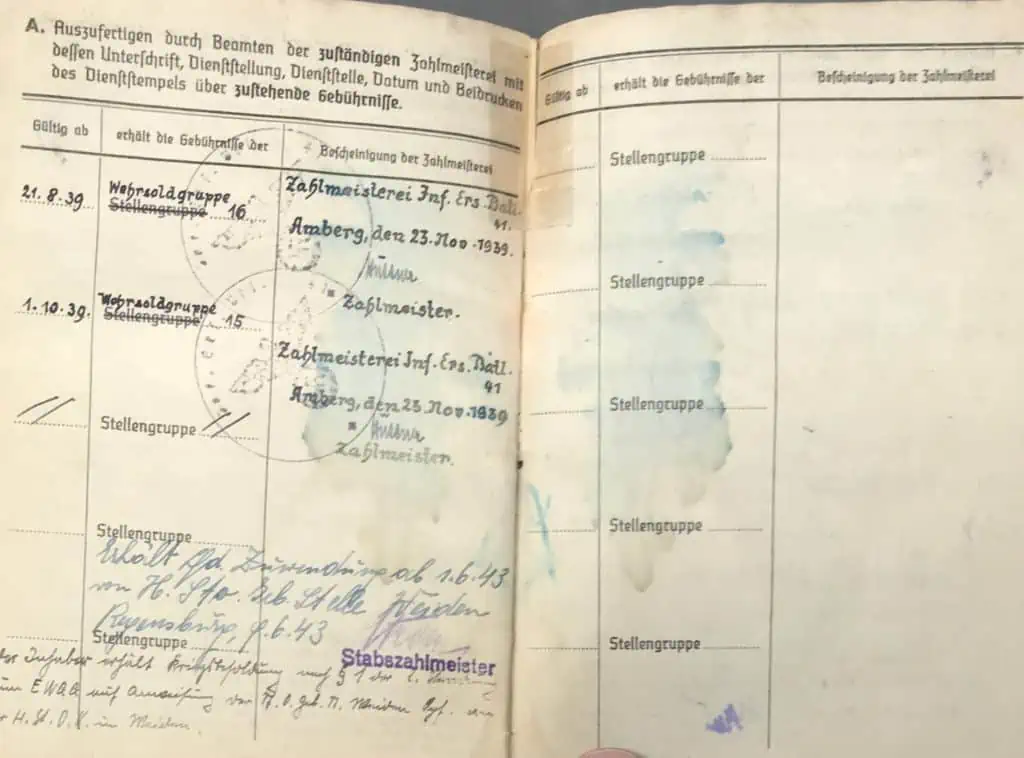 A. Auszufertigen durch Beamten der zuständigen Zahlmeisterei mit
dessen Unterschrift, Dienststellung, Dienststelle, Datum und Beidrucken
des Dienststempels über zustehende Gebührnisse.
Gültig ab erhält die Gebührnisse der Bescheinigung der Zahlmeisterei
21.8.39 Wehrsoldgruppe
Stellengruppe 16
Zahlmeisterei Inf. Ers. Batl.
41.
Amberg, den 23. Nov. 1939.
Zahlmeister.
1.10.39. Wehrsoldgruppe
Stellengruppe 15
Zahlmeisterei Inf. Ers. Batl.
41
Amberg, den 23. Nov. 1939
Zahlmeister.
Stellengruppe
Stellengruppe
Erhält Zuwendung ab 1.6.43
von H. Sto. Geb. Stelle Weiden
Regensburg, 9.6.43
Stellengruppe
Stabszahlmeister
Inhaber erhält Kriegsbesoldung nach § 1 der
EWGG auf Anweisung der Weiden
H. St. O. K. in Weiden.
Gültig ab erhält die Gebührnisse der Bescheinigung der Zahlmeisterei
Stellengruppe
Stellengruppe
Stellengruppe
Stellengruppe
Stellengruppe